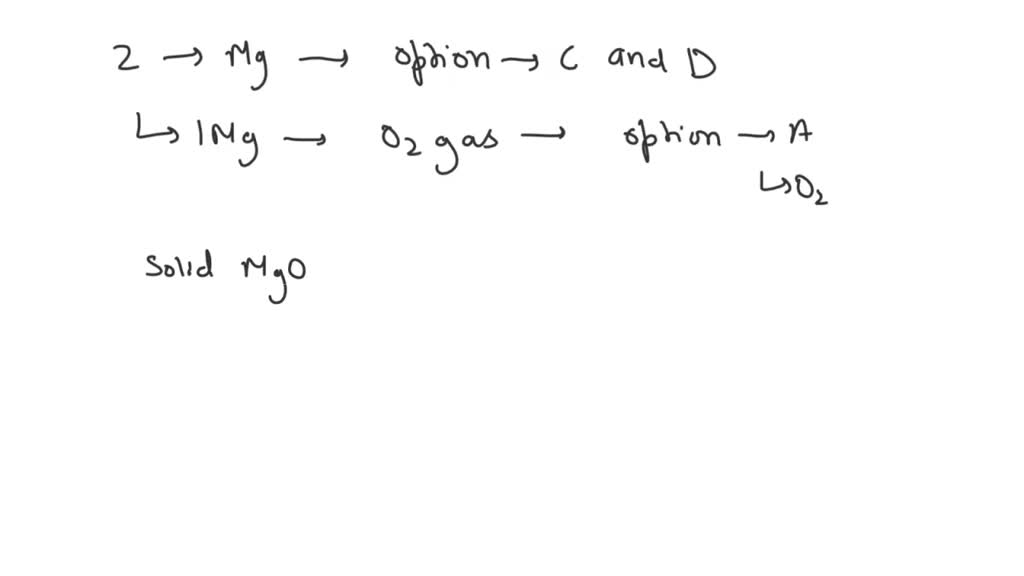 2 → Mg → option → C and D
↳ 1Mg → O2 gas → option → A
↳ O2
Solid MgO